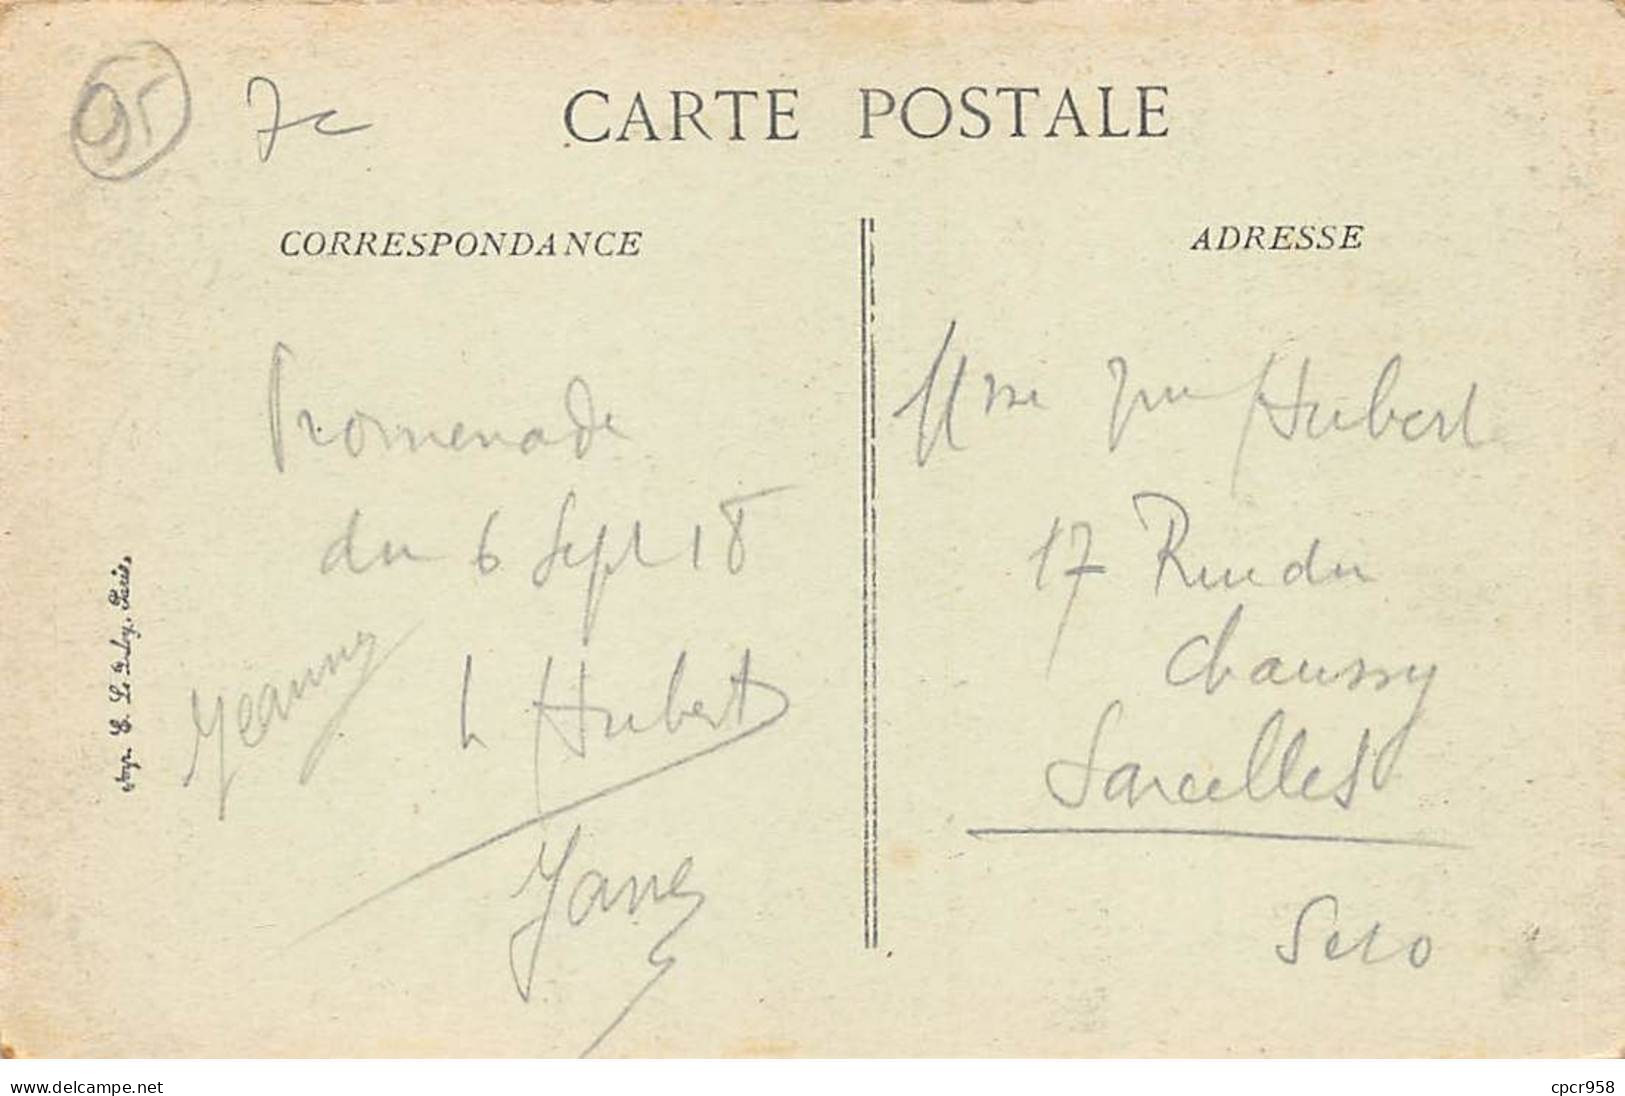 95 7c
CARTE POSTALE
CORRESPONDANCE
Promenade
du 6 Sept 18
Jeanne
L Hubert
Imp. E. Le Deley, Paris.
ADRESSE
Mme Hubert
17 Rue du
Chaussy
Sarcelles
S et O
www.delcampe.net
cpcr958